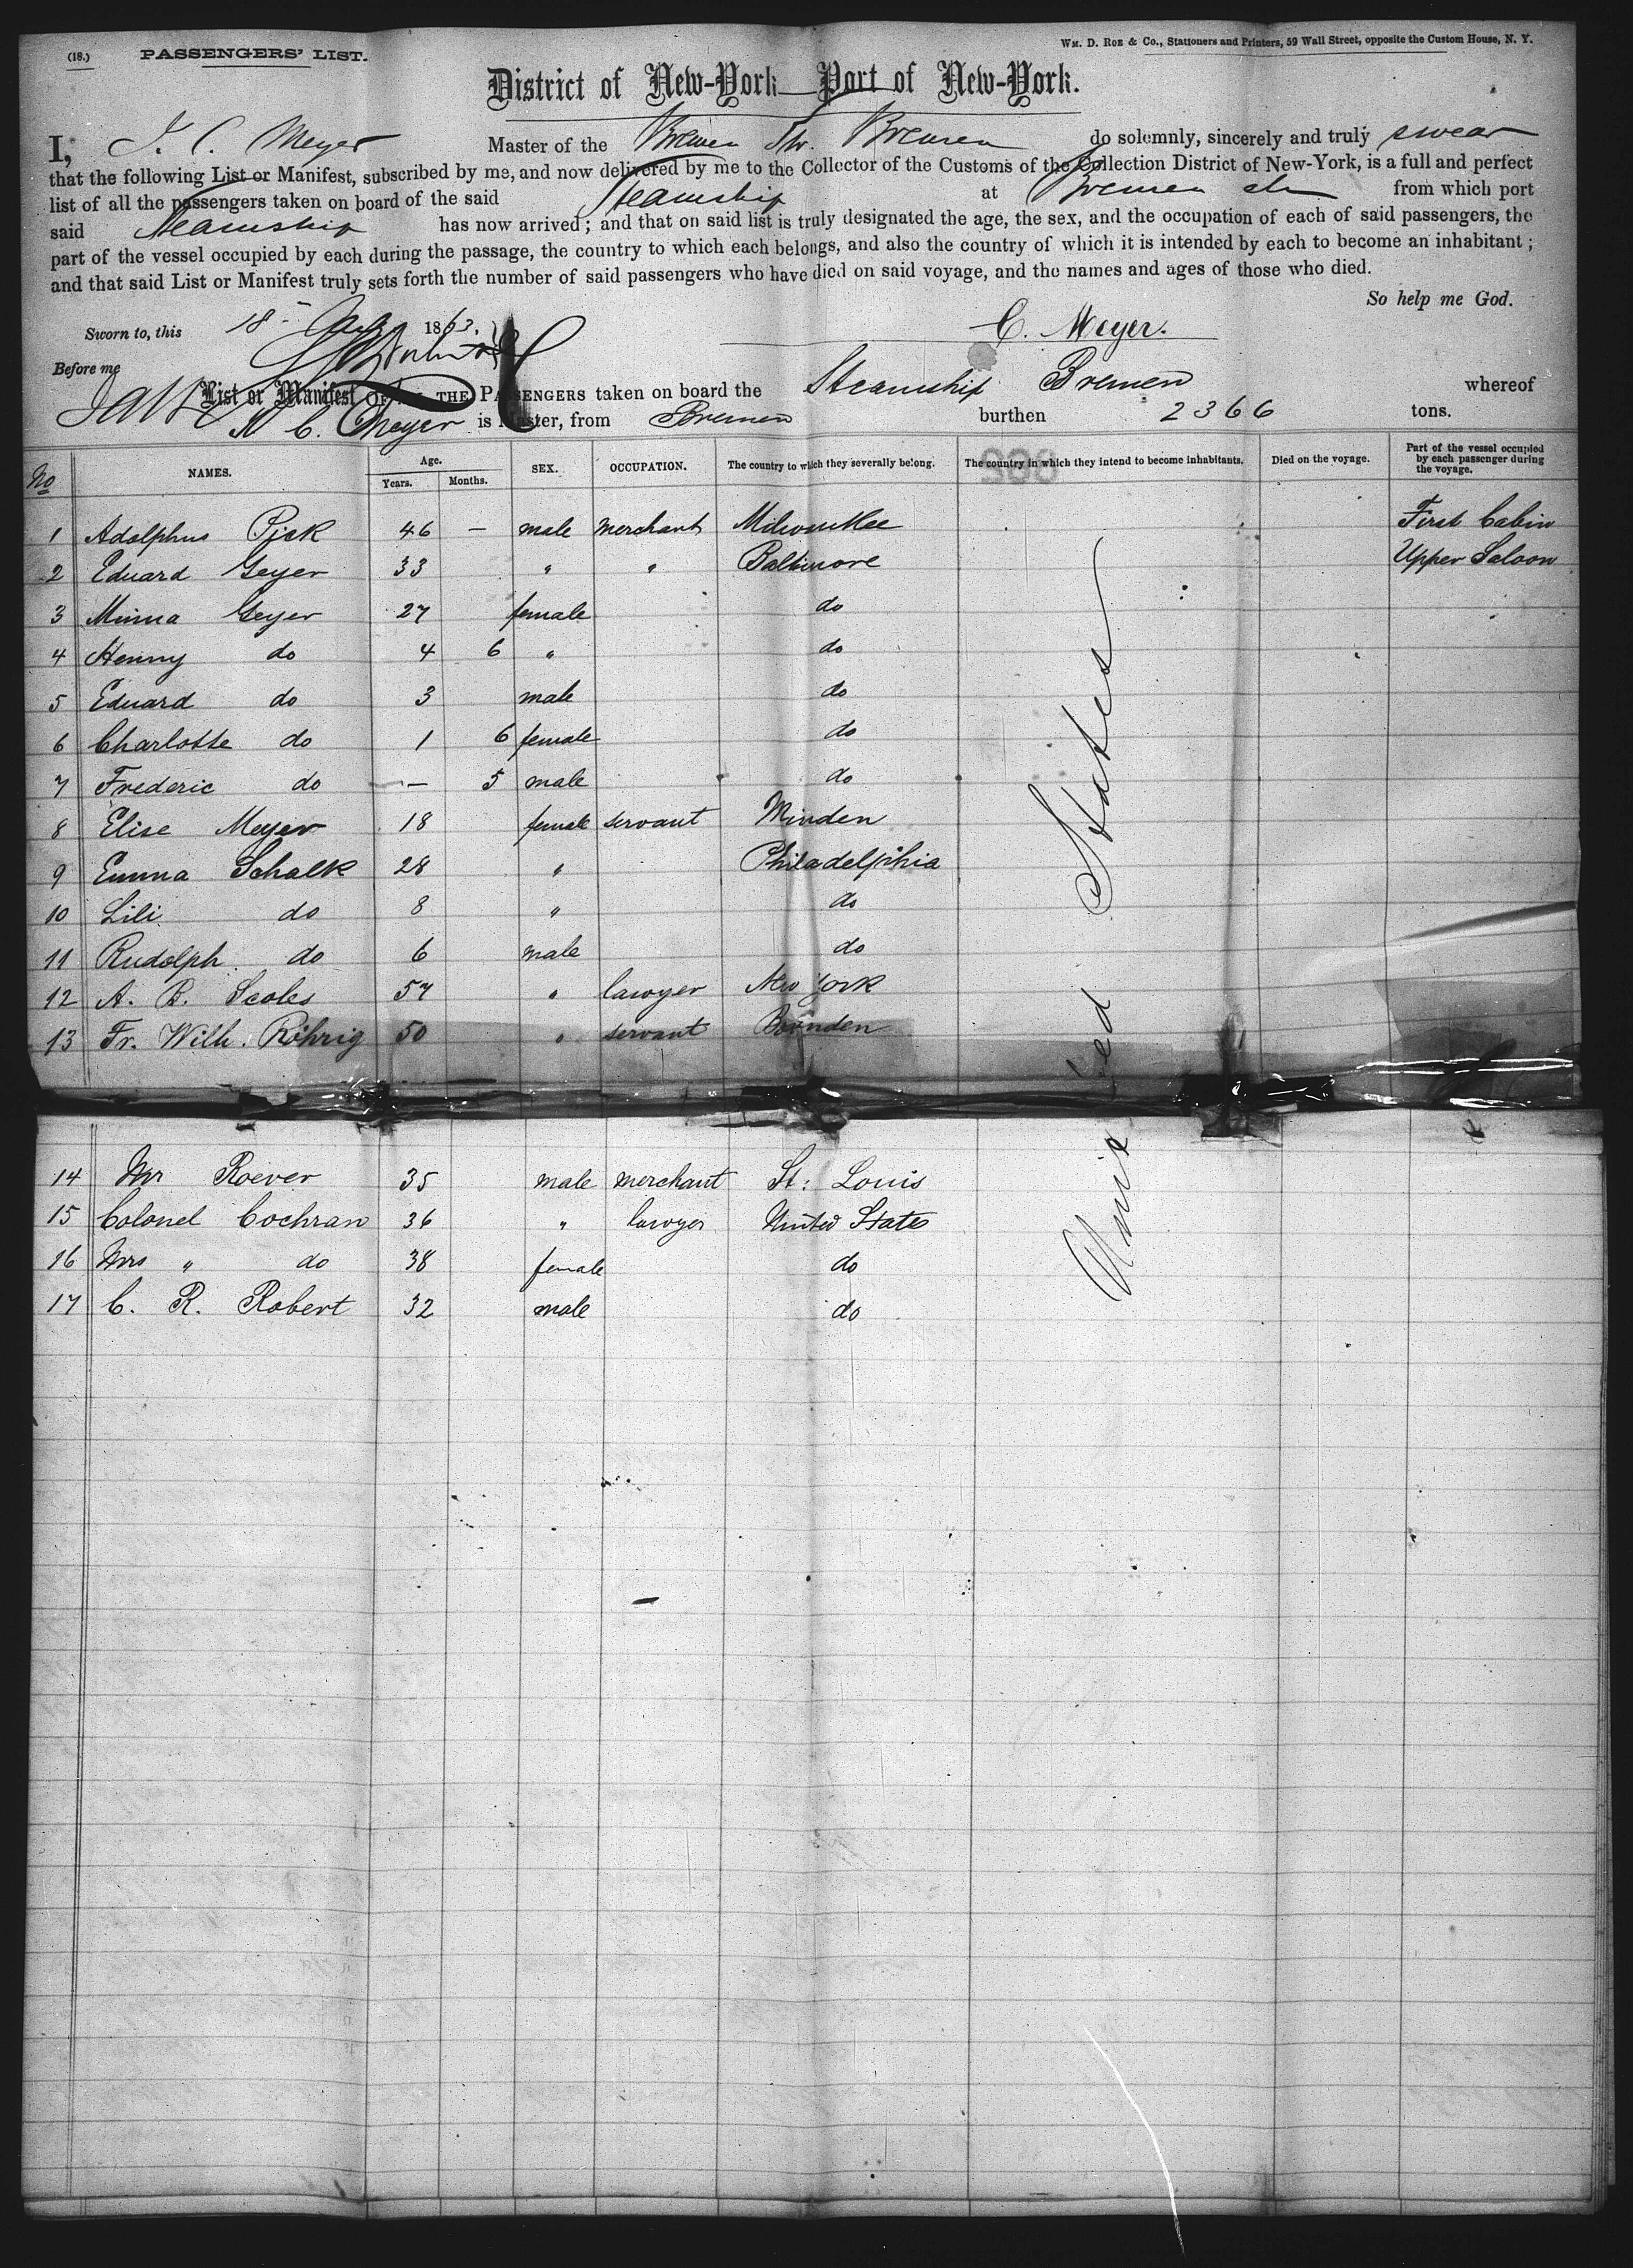 (18.) PASSENGERS' LIST. WM. D. ROE & CO., Stationers and Printers, 59 Wall Street, opposite the Custom House, N. Y.
District of New-York—Port of New-York.
I, C. Meyer Master of the Bremen Str. Bremen do solemnly, sincerely and truly swear
that the following List or Manifest, subscribed by me, and now delivered by me to the Collector of the Customs of the Collection District of New-York, is a full and perfect
list of all the passengers taken on board of the said Steamship at Bremen from which port
said Steamship has now arrived; and that on said list is truly designated the age, the sex, and the occupation of each of said passengers, the
part of the vessel occupied by each during the passage, the country to which each belongs, and also the country of which it is intended by each to become an inhabitant;
and that said List or Manifest truly sets forth the number of said passengers who have died on said voyage, and the names and ages of those who died.
So help me God.
Sworn to, this 18 Aug 1863. C. Meyer.
Before me
List or Manifest OF ALL THE PASSENGERS taken on board the Steamship Bremen whereof
C. Meyer is Master, from Bremen burthen 2366 tons.
No NAMES. Age. Years. Months. SEX. OCCUPATION. The country to which they severally belong. The country in which they intend to become inhabitants. Died on the voyage. Part of the vessel occupied by each passenger during the voyage.
1 Adolphus Pick 46 — male merchant Milwaukee First Cabin
2 Eduard Geyer 33 " " Baltimore Upper Saloon
3 Minna Geyer 27 female do
4 Henny do 4 6 " do
5 Eduard do 3 male do
6 Charlotte do 1 6 female do
7 Frederic do — 5 male do
8 Elise Meyer 18 female servant Minden
9 Emma Schalk 28 " Philadelphia
10 Lili do 8 " do
11 Rudolph do 6 male do
12 A. B. Scoles 57 " lawyer New York
13 Fr. Wilh. Röhrig 50 " servant
14 Mr Roever 35 male merchant St: Louis
15 Colonel Cochran 36 " lawyer United States
16 Mrs " do 38 female do
17 C. R. Robert 32 male do
United States